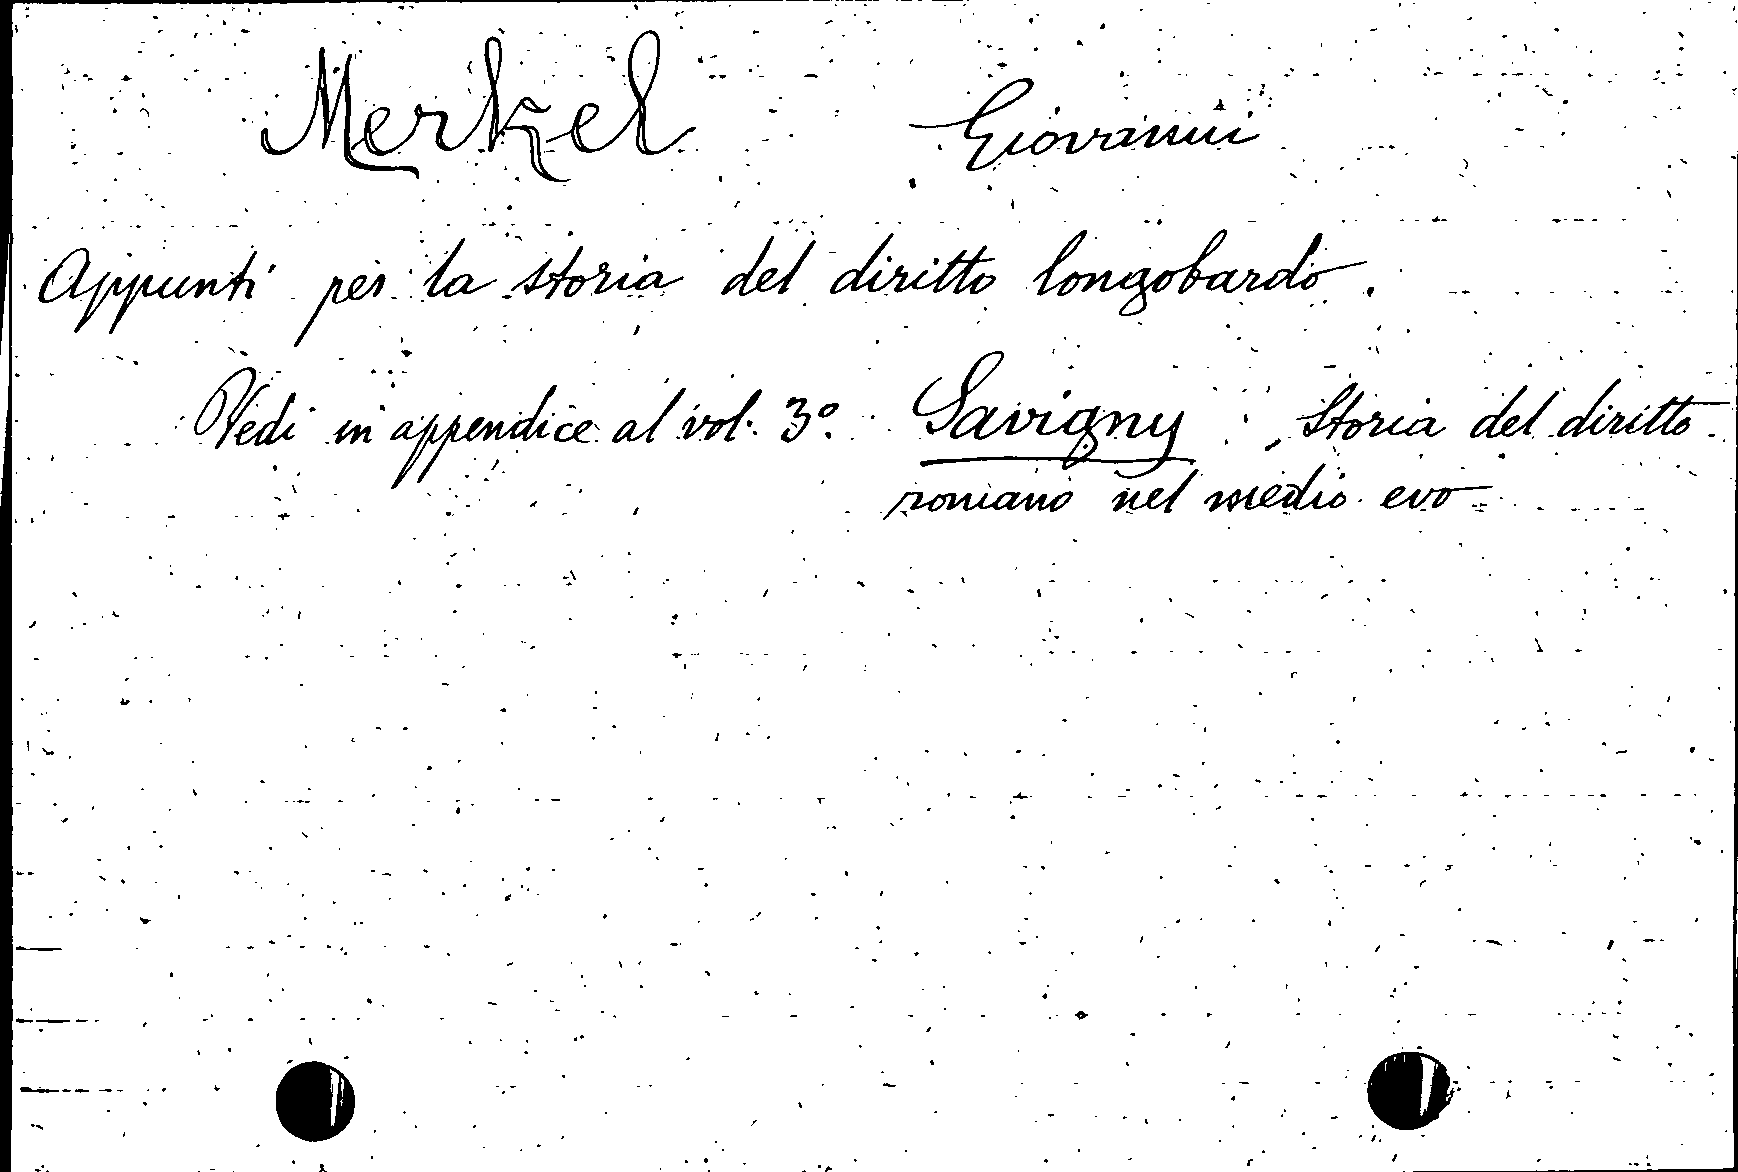 Merkel Giovanni
Appunti per la storia del diritto longobardo.
Vedi in appendice al vol. 3º. Savigny : Storia del diritto
romano nel medio evo